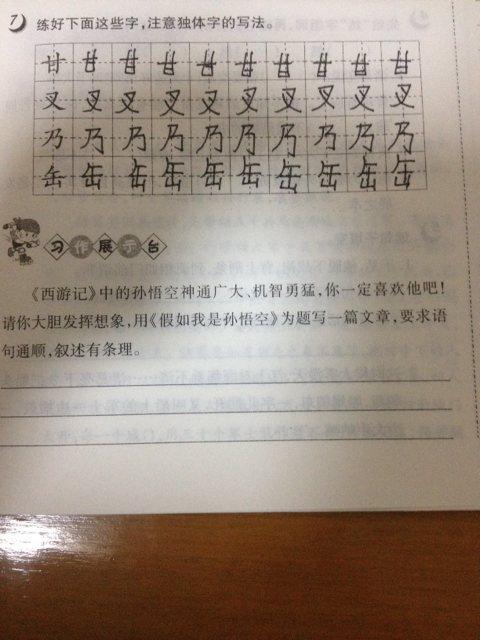 7 练好下面这些字，注意独体字的写法。
甘 甘 甘 甘 甘 甘 甘 甘 甘 甘
叉 叉 叉 叉 叉 叉 叉 叉 叉 叉
乃 乃 乃 乃 乃 乃 乃 乃 乃 乃
缶 缶 缶 缶 缶 缶 缶 缶 缶 缶
习作展示台
《西游记》中的孙悟空神通广大、机智勇猛，你一定喜欢他吧！
请你大胆发挥想象，用《假如我是孙悟空》为题写一篇文章，要求语
句通顺，叙述有条理。